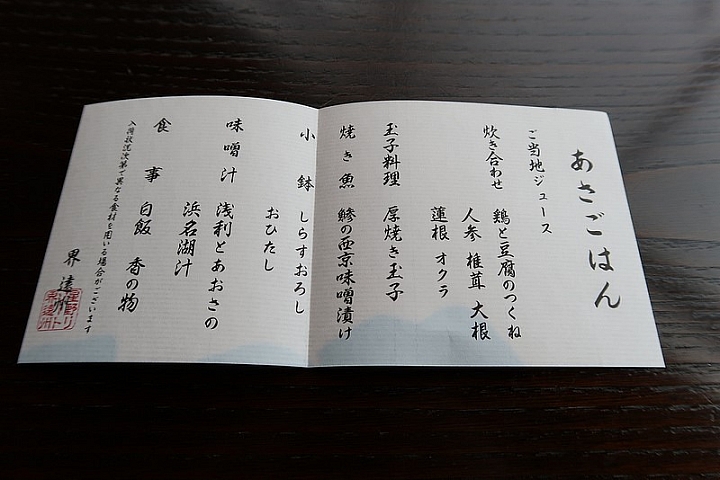 あさごはん
ご当地ジュース
炊き合わせ 鶏と豆腐のつくね
人参 椎茸 大根
蓮根 オクラ
玉子料理 厚焼き玉子
焼き魚 鯵の西京味噌漬け
小鉢 しらすおろし
おひたし
味噌汁 浅利とあおさの
浜名湖汁
食事 白飯 香の物
入荷状況次第で異なる食材を用いる場合がございます
界 遠州
星野リ
ト
界遠州